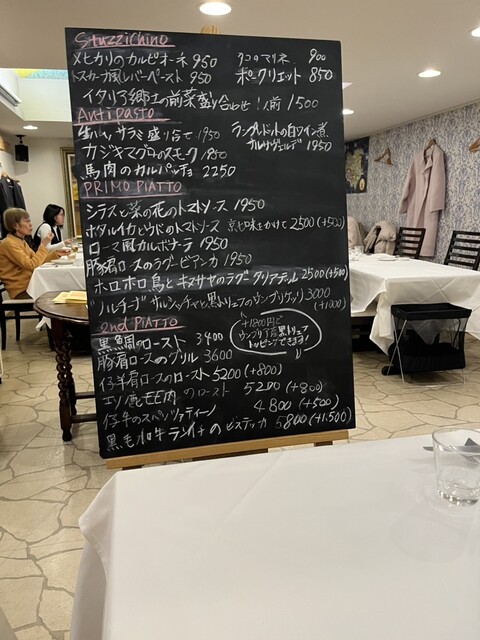 Stuzzichino
メヒカリのカルピオーネ 950 タコのマリネ 900
トスカーナ風レバーペースト 950 ポークリエット 850
イタリア郷土の前菜盛り合わせ！1人前 1500
Antipasto
生ハム、サラミ盛り合せ 1950
カジキマグロのスモーク 1850
馬肉のカルパッチョ 2250
ラングレドットの白ワイン煮
サルサヴェルデ 1950
PRIMO PIATTO
シラスと菜の花のトマトソース 1950
ホタルイカとウドのトマトソース 2500 (+500)
ローマ風カルボナーラ 1950
豚肩ロースのラグービアンカ 1950
ホロホロ鳥とキヌサヤのラグー タリアテッレ 2500 (+500)
サルシッチャと黒トリュフのウンブリケッリ 3000
(+1000)
2nd PIATTO
黒鯛のロースト 3400
豚肩ロースのグリル 3600
仔羊肩ロースのロースト 5200 (+800)
エゾ鹿モモ肉のロースト 5200 (+800)
仔牛のスペッツァティーノ 4800 (+500)
黒毛和牛ランイチのビステッカ 5800 (+1.500)
+1800円で
ウンブリア産黒トリュフ
トッピングできます！